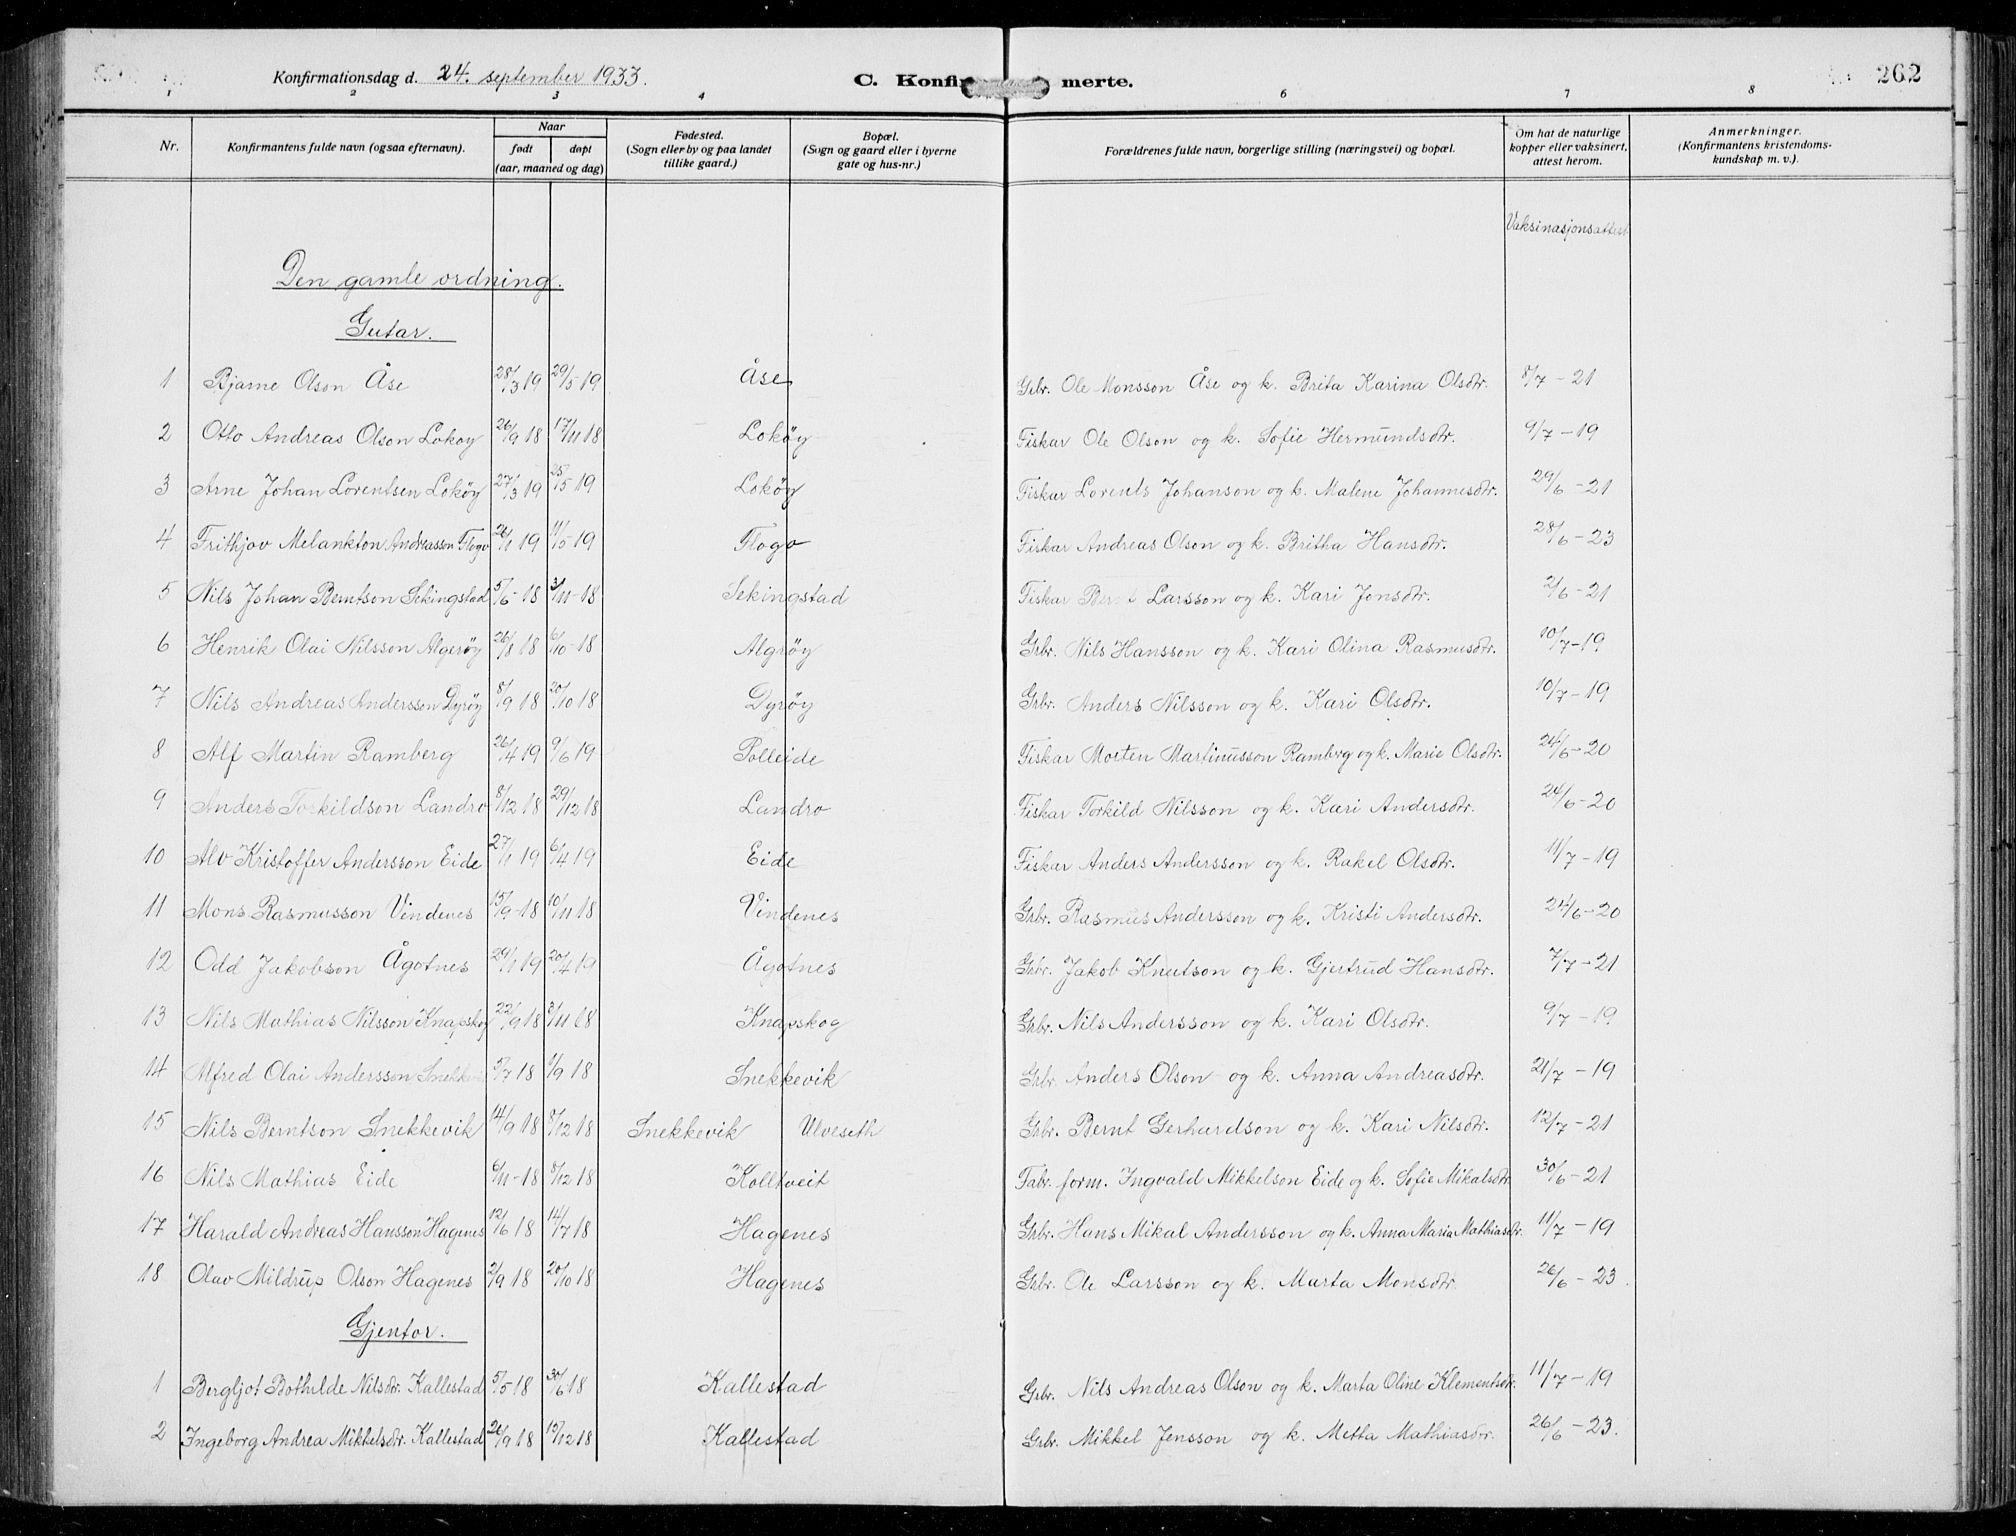 Konfirmationsdag d. 24. september 1933. C. Konfir merte. 262
1 2 3 4 6 7 8
Nr. Konfirmantens fulde navn (ogsaa efternavn). Naar født døpt (aar, maaned og dag) Fødested. (Sogn eller by og paa landet tillike gaard.) Bopæl. (Sogn og gaard eller i byerne gate og hus-nr.) Forældrenes fulde navn, borgerlige stilling (næringsvei) og bopæl. Om hat de naturlige kopper eller vaksinert, attest herom. Anmerkninger. (Konfirmantens kristendomskundskap m. v.).
Vaksinasjonsattest
Den gamle ordning.
Gutar.
1 Bjarne Olson Åse 28/3 19 29/5 19 Åse Grbr. Ole Monsson Åse og k. Brita Karina Olsdtr. 8/7-21
2 Otto Andreas Olson Lokøy 26/9 18 17/11 18 Lokøy Fiskar Ole Olson og k. Sofie Hermundsdtr. 9/7-19
3 Arne Johan Lorentsen Lokøy 27/3 19 25/5 19 Lokøy Fiskar Lorents Johanson og k. Malene Johannesdtr. 29/6-21
4 Frithjov Melankton Andreasson Flogo 26/1 19 11/5 19 Flogo Fiskar Andreas Olson og k. Britha Hansdtr. 28/6-23
5 Nils Johan Berntson Sekingstad 5/6-18 3/11-18 Sekingstad Fiskar Bernt Larsson og k. Kari Jonsdtr. 2/6-21
6 Henrik Olai Nilsson Algerøy 26/8 18 6/10-18 Algrøy Grbr. Nils Hansson og k. Kari Olina Rasmusdtr. 10/7-19
7 Nils Andreas Andersson Dyrøy 8/9 18 20/10 18 Dyrøy Grbr. Anders Nilsson og k. Kari Olsdtr. 10/7-19
8 Alf Martin Ramberg 26/4 19 9/6 19 Polleide Fiskar Morten Martinusson Rambrg og k. Marie Olsdtr. 24/6-20
9 Anders Torkildson Landro 8/12 18 29/12 18 Landro Fiskar Torkild Nilsson og k. Kari Andersdtr. 24/6-20
10 Alv Kristoffer Andersson Eide 27/1 19 6/4 19 Eide Fiskar Anders Andersson og k. Rakel Olsdtr. 11/7-19
11 Mons Rasmusson Vindenes 15/9-18 10/11 18 Vindenes Grbr. Rasmus Andersson og k. Kristi Andersdtr. 24/6-20
12 Odd Jakobson Ågotnes 29/1 19 20/4 19 Ågotnes Grbr. Jakob Knutson og k. Gjertrud Hansdtr. 7/7-21
13 Nils Mathias Nilsson Knapskog 22/9 18 3/11 18 Knapskog Grbr. Nils Andersson og k. Kari Olsdtr. 9/7-19
14 Alfred Olai Andersson 5/7 18 1/9 18 Snekkevik Grbr. Anders Olson og k. Anna Andreasdtr. 21/7-19
15 Nils Berntson Snekkevik 14/9 18 8/12 18 Snekkevik Ulveseth Grbr. Bernt Gerhardson og k. Kari Nilsdtr. 12/7-21
16 Nils Mathias Eide 6/11-18 8/12 18 Kolltveit Fabr. form. Ingvald Mikkelson Eide og k. Sofie Mikalsdtr. 30/6-21
17 Harald Andreas Hansson Hagenes 12/6 18 14/7 18 Hagenes Grbr. Hans Mikal Andersson og k. Anna Maria Mathiasdtr. 11/7-19
18 Olav Mildrup Olson Hagenes 2/9 18 20/10 18 Hagenes Grbr. Ole Larsson og k. Marta Monsdtr. 26/6-23.
Gjentor.
1 Bergljot Bothilde Nilsdtr. Kallestad 5/5-18 30/6 18 Kallestad Grbr. Nils Andreas Olson og k. Marta Oline Klementsdtr. 11/7-19
2 Ingeborg Andrea Mikkelsdtr. Kallestad 26/9 18 15/12 18 Kallestad Grbr. Mikkel Jensson og k. Metta Mathiasdtr. 26/6-23.